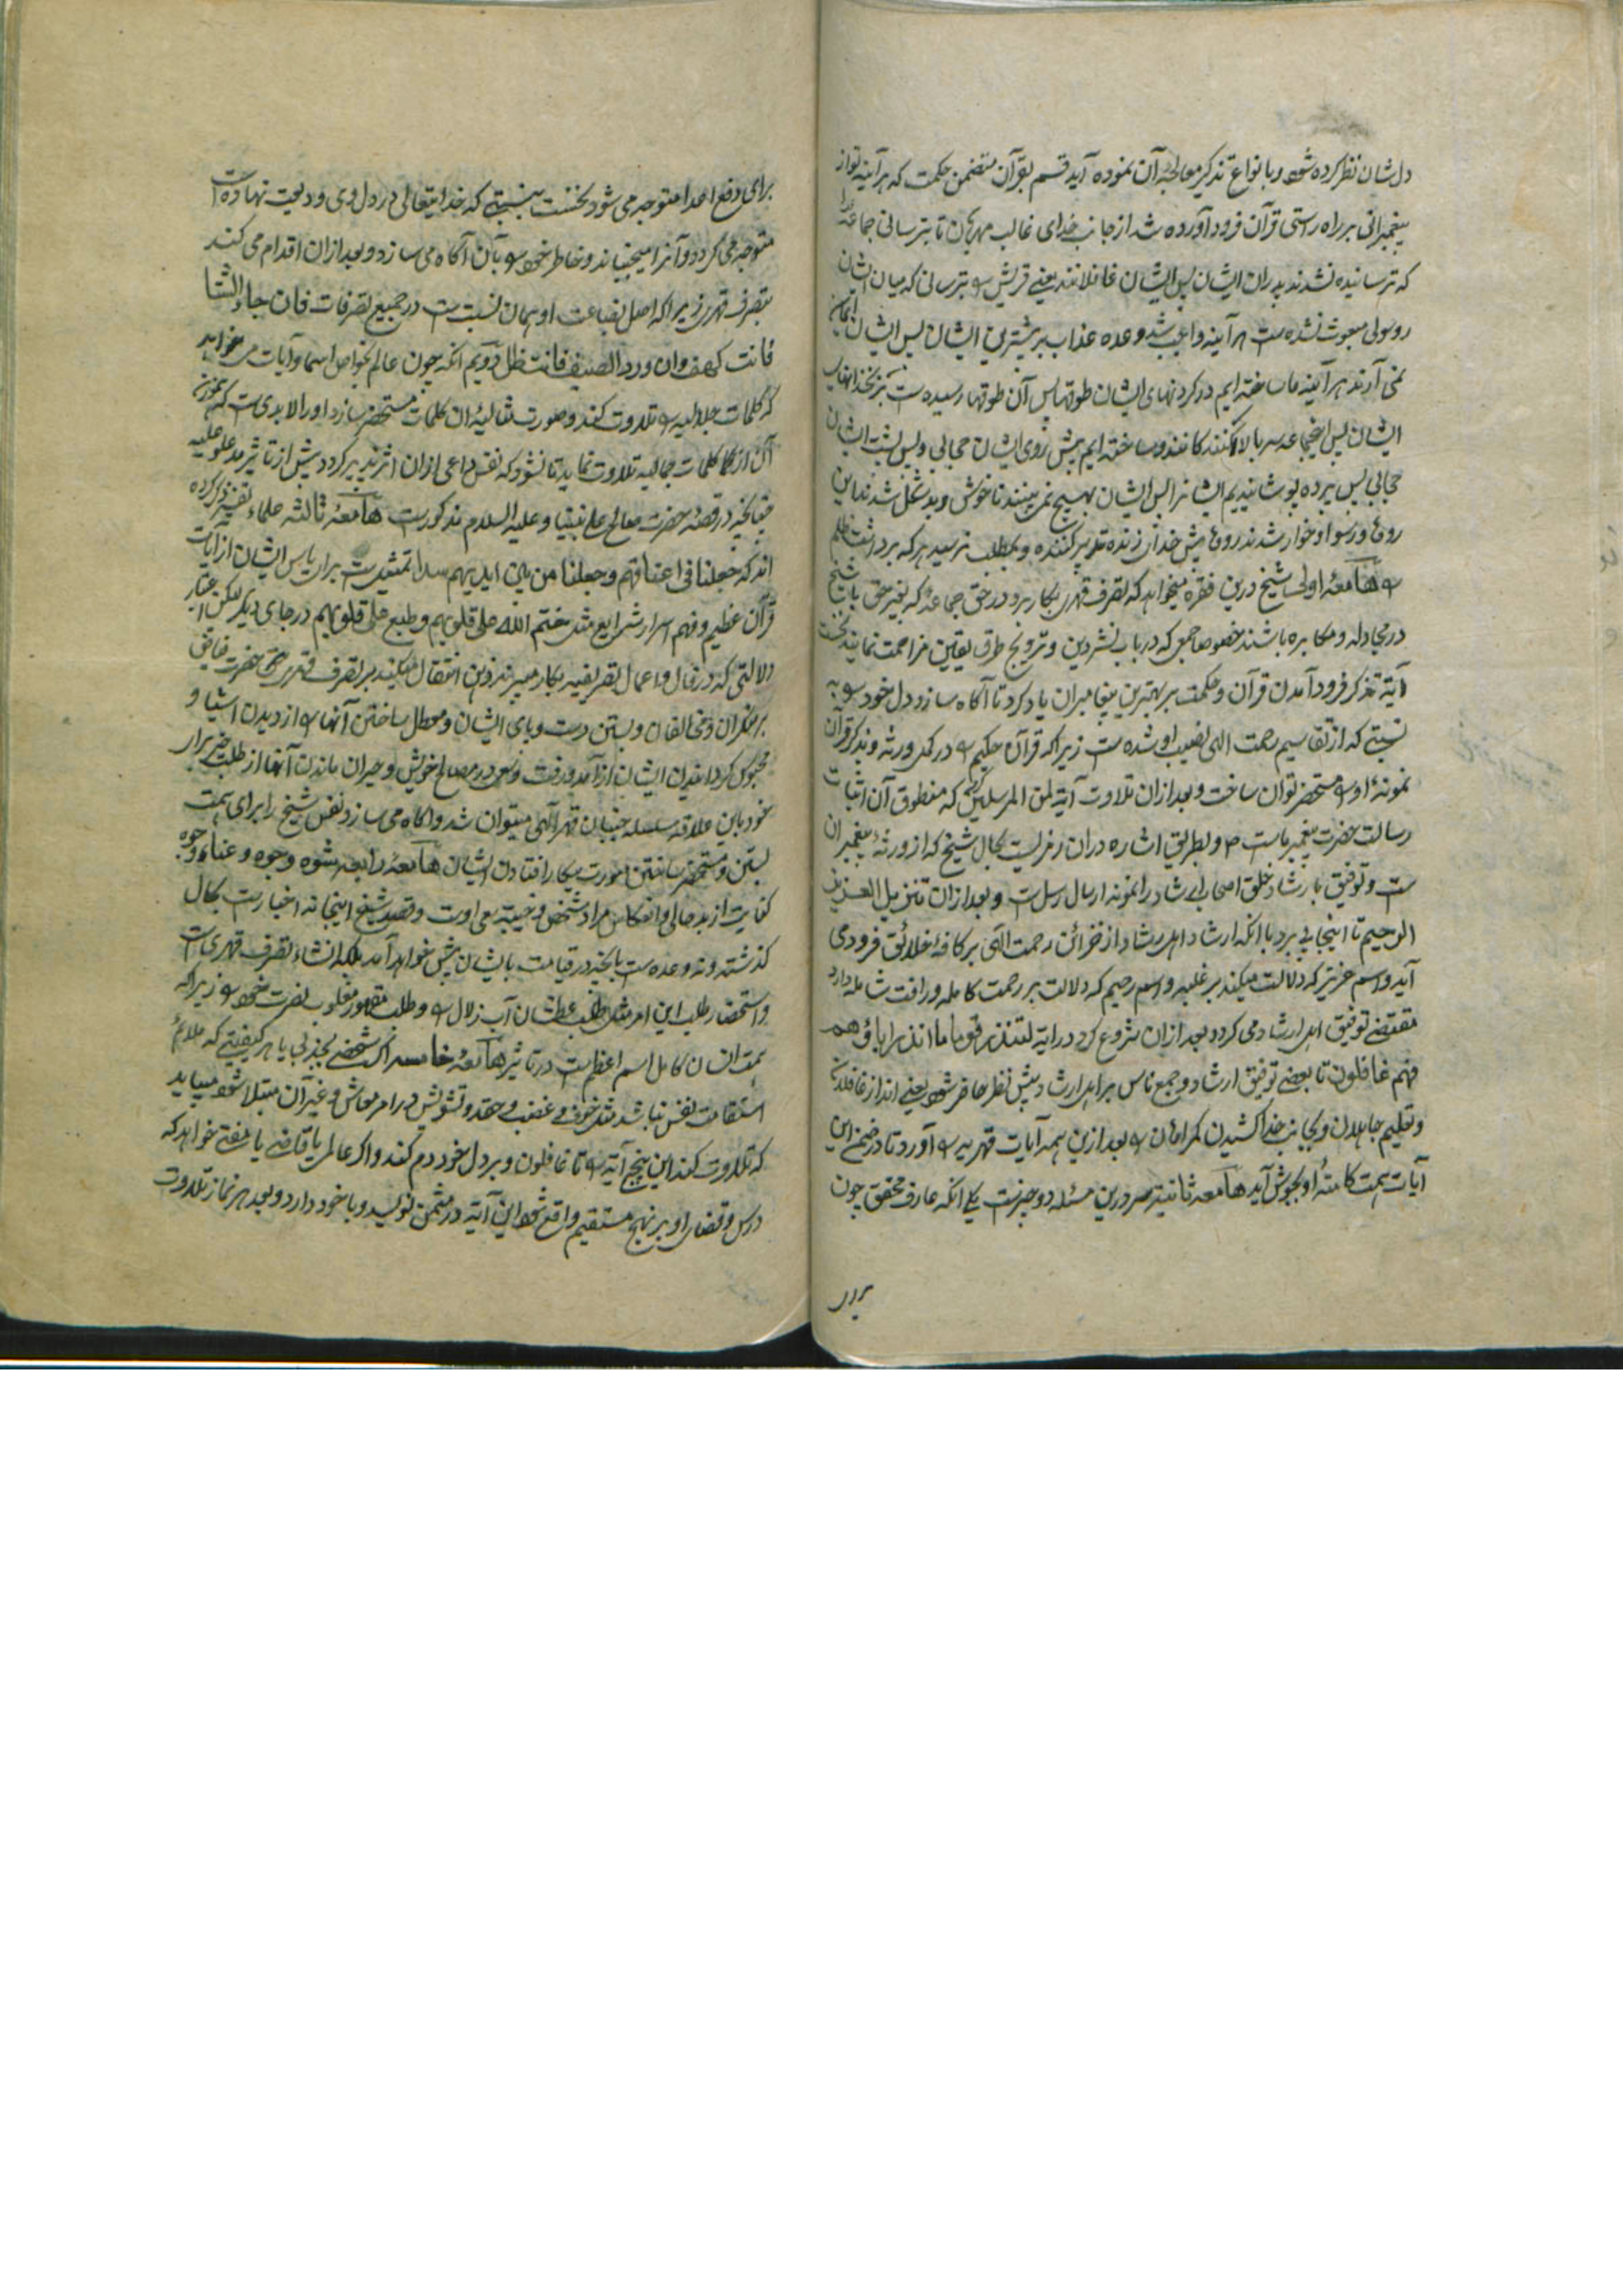 دل شان نظر کرده شود و بانواع تذکیر معالجهٔ آن نموده آید قسم بقرآن متضمن حکمت که هر آینه تو از
پیغمبرانی بر راه راستی قرآن فرود آورده شد از جانب خدای غالب مهربان تا بترسانی جماعهٔ را
که ترسانیده نشدند پدران ایشان پس ایشان غافلانند یعنی قریش را بترسانی که میان ایشان
رسولی مبعوث نشده است هر آینه واجب شد وعده عذاب بر بیشترین ایشان پس ایشان ایمان
نمی آرند هر آینه ما ساخته ایم در گردنهای ایشان طوقها پس آن طوقها رسیده است بزنخدانهای
ایشان پس این جماعه سر بالا کنندگانند و ساخته ایم پیش روی ایشان حجابی و پس پشت ایشان
حجابی پس پرده پوشانیدیم ایشانرا پس ایشان هیچ نمی بینند ناخوش و بد شکل شدند این
روها و رسوا و خوار شدند روها پیش خدای زنده تدبیر کننده و بمطلب نرسید هر که برداشت ظلم
را هامعهٔ اولی شیخ درین فقره میخواهد که تصرف قهری بکار برد در حق جماعهٔ که بغیر حق با شیخ
در مجادله و مکابره باشند خصوصا جمعی که در باب نشر دین و ترویج طرق یقین مزاحمت نمایند نخست
آیهٔ تذکر فرود آمدن قرآن و حکمت بر بهترین پیغامبران یاد کرد تا آگاه سازد دل خود را به
نسبتی که از تقاسیم رحمت الهی نصیب او شده است زیرا که قرآن حکیم را در کمل ورثه و بذکر قرآن
نمونهٔ او را مستحضر توان ساخت و بعد ازان تلاوت آیه لمن المرسلین کرد که منطوق آن اثبات
رسالت حضرت پیغمبر ماست و بطریق اشاره دران رمزیست بکمال شیخ که از ورثهٔ پیغمبران
ست و توفیق بارشاد خلق اصحاب ارشاد را نمونه ارسال رسل است و بعد ازان تنزیل العزیز
الرحیم تا اینجا پی برد با آنکه ارشاد اهل رشاد از خزائن رحمت الهی بر کافهٔ خلائق فرود می
آید و اسم عزیز که دلالت میکند بر غلبه و اسم رحیم که دلالت بر رحمت کامله و رافت شامله دارد
مقتضی توفیق اهل ارشاد می گردد بعد ازان شروع کرد در آیه لتنذر قوما ما انذر اباؤهم
فهم غافلون تا بمعنی توفیق ارشاد و جمع ناس بر اهل ارشاد پیش نظر حاضر شود یعنی انذار غافلان
و تعلیم جاهلان و بجانب خدا کشیدن گمراهان را بعد ازین همه آیات قهریه را آورد تا در ضمن این
آیات همت کامنهٔ او بجوش آید هامعه ثانیة سر درین مسئله دو چیزست یکی آنکه عارف محقق چون
برای
برای دفع اعدا متوجه می شود نخست بنسبتی که خدایتعالی در دل وی ودیعت نهاده است
متوجه می گردد و آنرا میجنباند و خاطر خود را بآن آگاه می سازد و بعد ازان اقدام می کند
بتصرف قهری زیرا که اصل بضاعت او همان نسبت ست در جمیع تصرفات فان جاء الشتا
فانت کهف وان ورد الصیف فانت ظل دویم آنکه چون عالم بخواص اسما و آیات می خواهد
که کلمات جلالیه را تلاوت کند و صورت مثالیهٔ آن کلمات مستحضر سازد او را لابدی ست که
ازان کلمات جمالیه تلاوت نماید تا نشود که نفس داعی ازان اثر پذیر گردد پیش از تاثیر مدعو علیه
چنانچه در قصهٔ حضرت صالح علی نبینا و علیه السلام مذکورست هامعهٔ ثالثه علماء تفسیر ذکر کرده
اند که جعلنا فی اعناقهم وجعلنا من بین ایدیهم سدا تمثیل ست برای یاس ایشان از آیات
قرآن عظیم و فهم اسرار شرایع مثل ختم الله علی قلوبهم و طبع علی قلوبهم در جای دیگر لیکن باعتبار
دلالتی که در فال و اعمال تصریفیه بکار میبرند ذهن انتقال میکند بر تصرف قهری حضرت
بر منکران و مخالفان و بستن دست و پای ایشان و معطل ساختن آنها را از دیدن اشیا و
محبوس گردانیدن ایشان از آمد و رفت و سعی در مصالح خویش و حیران ماندن آنها از طلب خیر برای
خود باین علاقه سلسله جنبان قهر الهی میتوان شد و آگاه می سازد نفس شیخ را برای همت
بستن و مستحضر ساختن صورت بیکار افتادن ایشان هامعهٔ رابعه شوه وجوه و عناء وجوه
کنایت از بدحالی و انعکاس مراد شخص و خیبه سعی اوست و قصد شیخ اینجا نه اخبارست بحال
گذشته و نه وعده ست بآنچه در قیامت بایشان پیش خواهد آمد بلکه انشاء تصرف قهری است
و استحضار طلب این امر مثل طلب عطشان آب زلال را و طلب مقهور مغلوب نصرت خود را زیرا که
همت انسان کامل اسم اعظم ست در تاثیر هامعهٔ خامسه اگر شخصی بجذبی یا هر کیفیتی که ملائم
استقامت نفس نباشد مثل خوف و غضب و حقد و تشویش در امر معاش و غیر آن مبتلا شود میباید
که تلاوت کند این پنج آیه را تا غافلون و بر دل خود دم کند و اگر عالمی یا قاضی یا مفتی خواهد که
درس و قضای او بر نهج مستقیم واقع شود این آیه در مثمن نویسد و با خود دارد و بعد هر نماز تلاوت